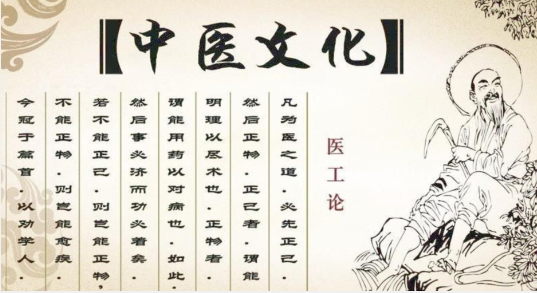 【中医文化】
医工论
凡为医之道.必先正己.
然后正物.正己者.谓能
明理以尽术也.正物者.
谓能用药以对病也.如此.
然后事必济而功必着矣.
若不能正己.则岂能正物,
不能正物.则岂能愈疾.
今冠于篇首.以劝学人.